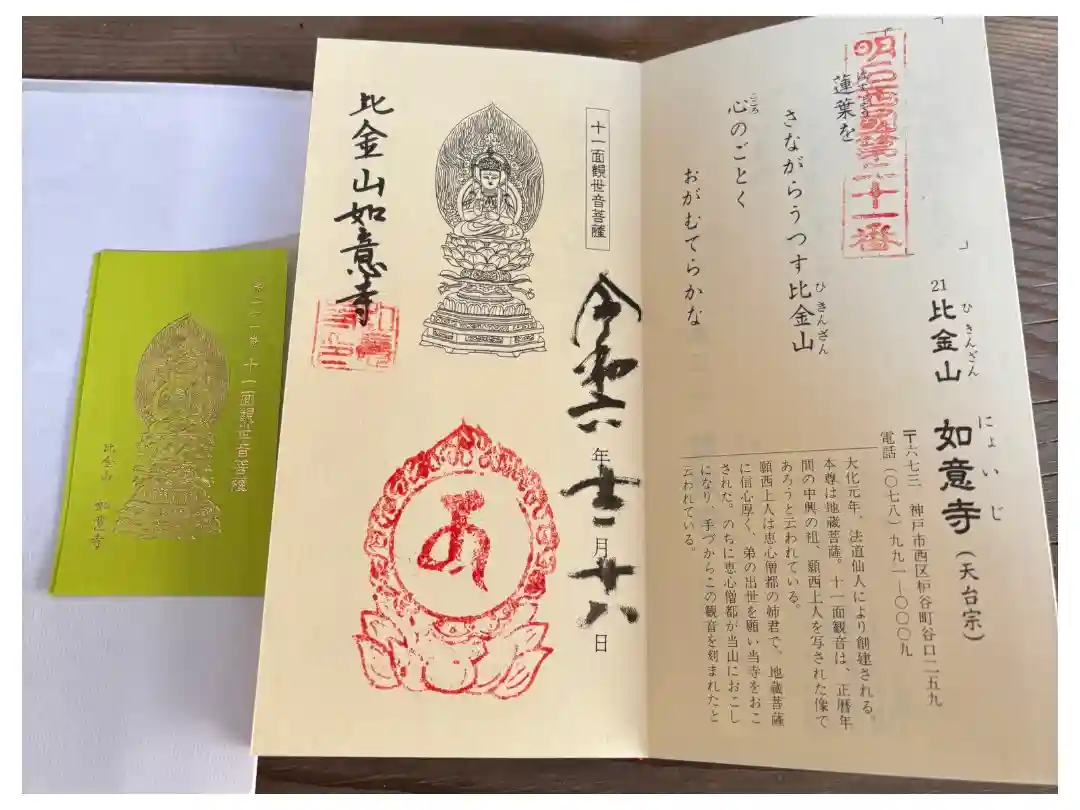 明石西国第二十一番
蓮葉を
さながらうつす比金山
ひきんざん
心のごとく
こころ
おがむてらかな
21
比金山
ひきんざん
如意寺(天台宗)
にょいじ
〒六七三 神戸市西区枦谷町谷口二五九
電話(〇七八)九九一―〇〇〇九
大化元年、法道仙人により創建される。
本尊は地蔵菩薩。十一面観音は、正暦年
間の中興の祖、願西上人を写された像で
あろうと云われている。
願西上人は恵心僧都の姉君で、地蔵菩薩
に信心厚く、弟の出世を願い当寺をおこ
された。のちに恵心僧都が当山におこし
になり、手づからこの観音を刻まれたと
云われている。
十一面観世音菩薩
令和六年十一月十八日
比金山如意寺
十一面観世音菩薩
比金山 如意寺